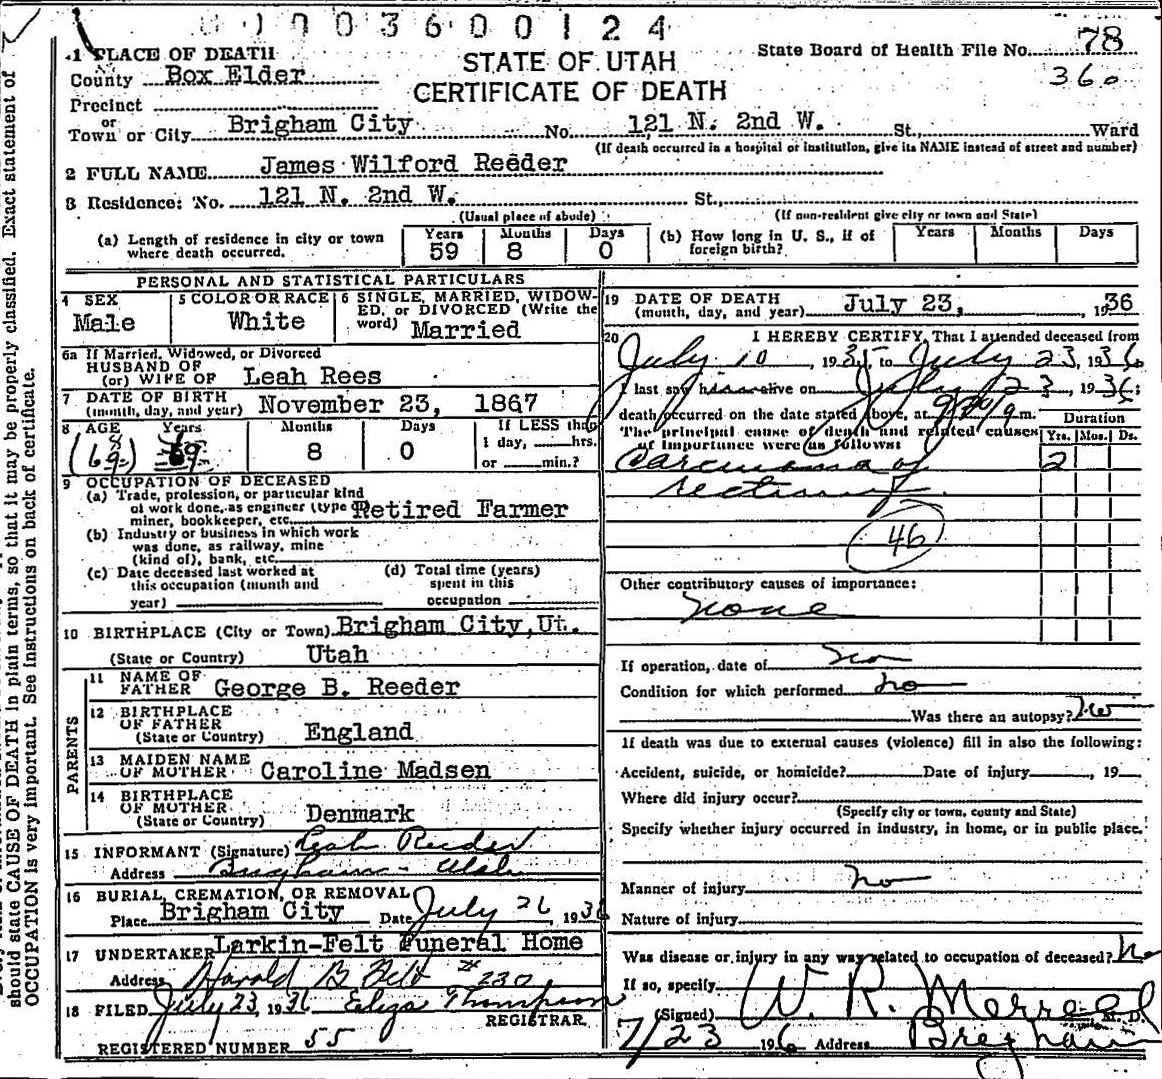 0003600124
1 PLACE OF DEATH
STATE OF UTAH
CERTIFICATE OF DEATH
State Board of Health File No. 78
360
County Box Elder
Precinct
or
Town or City Brigham City No. 121 N. 2nd W. St., Ward
(If death occurred in a hospital or institution, give its NAME instead of street and number)
2 FULL NAME James Wilford Reeder
3 Residence: No. 121 N. 2nd W. St.,
(Usual place of abode) (If non-resident give city or town and State)
(a) Length of residence in city or town where death occurred. Years 59 Months 8 Days 0
(b) How long in U. S., if of foreign birth? Years Months Days
PERSONAL AND STATISTICAL PARTICULARS
4 SEX Male
5 COLOR OR RACE White
6 SINGLE, MARRIED, WIDOW-
ED, or DIVORCED (Write the
word) Married
6a If Married, Widowed, or Divorced
HUSBAND OF
(or) WIFE OF Leah Rees
7 DATE OF BIRTH
(month, day, and year) November 23, 1867
8 AGE Years Months Days If LESS than
(68) 69 8 0 1 day, hrs.
or min.?
9 OCCUPATION OF DECEASED
(a) Trade, profession, or particular kind
of work done, as engineer (type
miner, bookkeeper, etc. Retired Farmer
(b) Industry or business in which work
was done, as railway, mine
(kind of), bank, etc.
(c) Date deceased last worked at
this occupation (month and
year)
(d) Total time (years)
spent in this
occupation
10 BIRTHPLACE (City or Town) Brigham City, Ut.
(State or Country) Utah
PARENTS
11 NAME OF
FATHER George B. Reeder
12 BIRTHPLACE
OF FATHER
(State or Country) England
13 MAIDEN NAME
OF MOTHER Caroline Madsen
14 BIRTHPLACE
OF MOTHER
(State or Country) Denmark
15 INFORMANT (Signature) Leah Reeder
Address Brigham - Utah
16 BURIAL, CREMATION, OR REMOVAL
Place Brigham City Date July 26, 1936
17 UNDERTAKER Larkin-Felt Funeral Home
Address Harold B Felt # 230
18 FILED July 23, 1936 Eliza Thompson
REGISTRAR.
REGISTERED NUMBER 55
19 DATE OF DEATH
(month, day, and year) July 23, 1936
20 I HEREBY CERTIFY, That I attended deceased from
July 10, 1935, to July 23, 1936
I last saw him alive on July 23, 1936;
death occurred on the date stated above, at m.
The principal cause of death and related causes
of importance were as follows:
Duration
Yrs. Mos. Ds.
Carcinoma of 2
rectum
46
Other contributory causes of importance:
none
If operation, date of no
Condition for which performed no
Was there an autopsy? no
If death was due to external causes (violence) fill in also the following:
Accident, suicide, or homicide? Date of injury , 19
Where did injury occur?
(Specify city or town, county and State)
Specify whether injury occurred in industry, in home, or in public place.
Manner of injury no
Nature of injury
Was disease or injury in any way related to occupation of deceased? no
If so, specify
(Signed) W. R. Merrell M. D.
7/23 1936 Address Brigham
should state CAUSE OF DEATH in plain terms, so that it may be properly classified. Exact statement of
OCCUPATION is very important. See instructions on back of certificate.